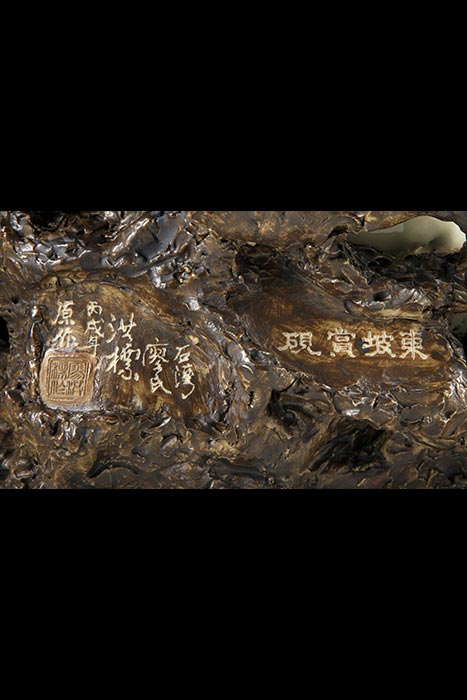 東坡賞硯
石灣
廖氏
洪標
丙戌年
原作